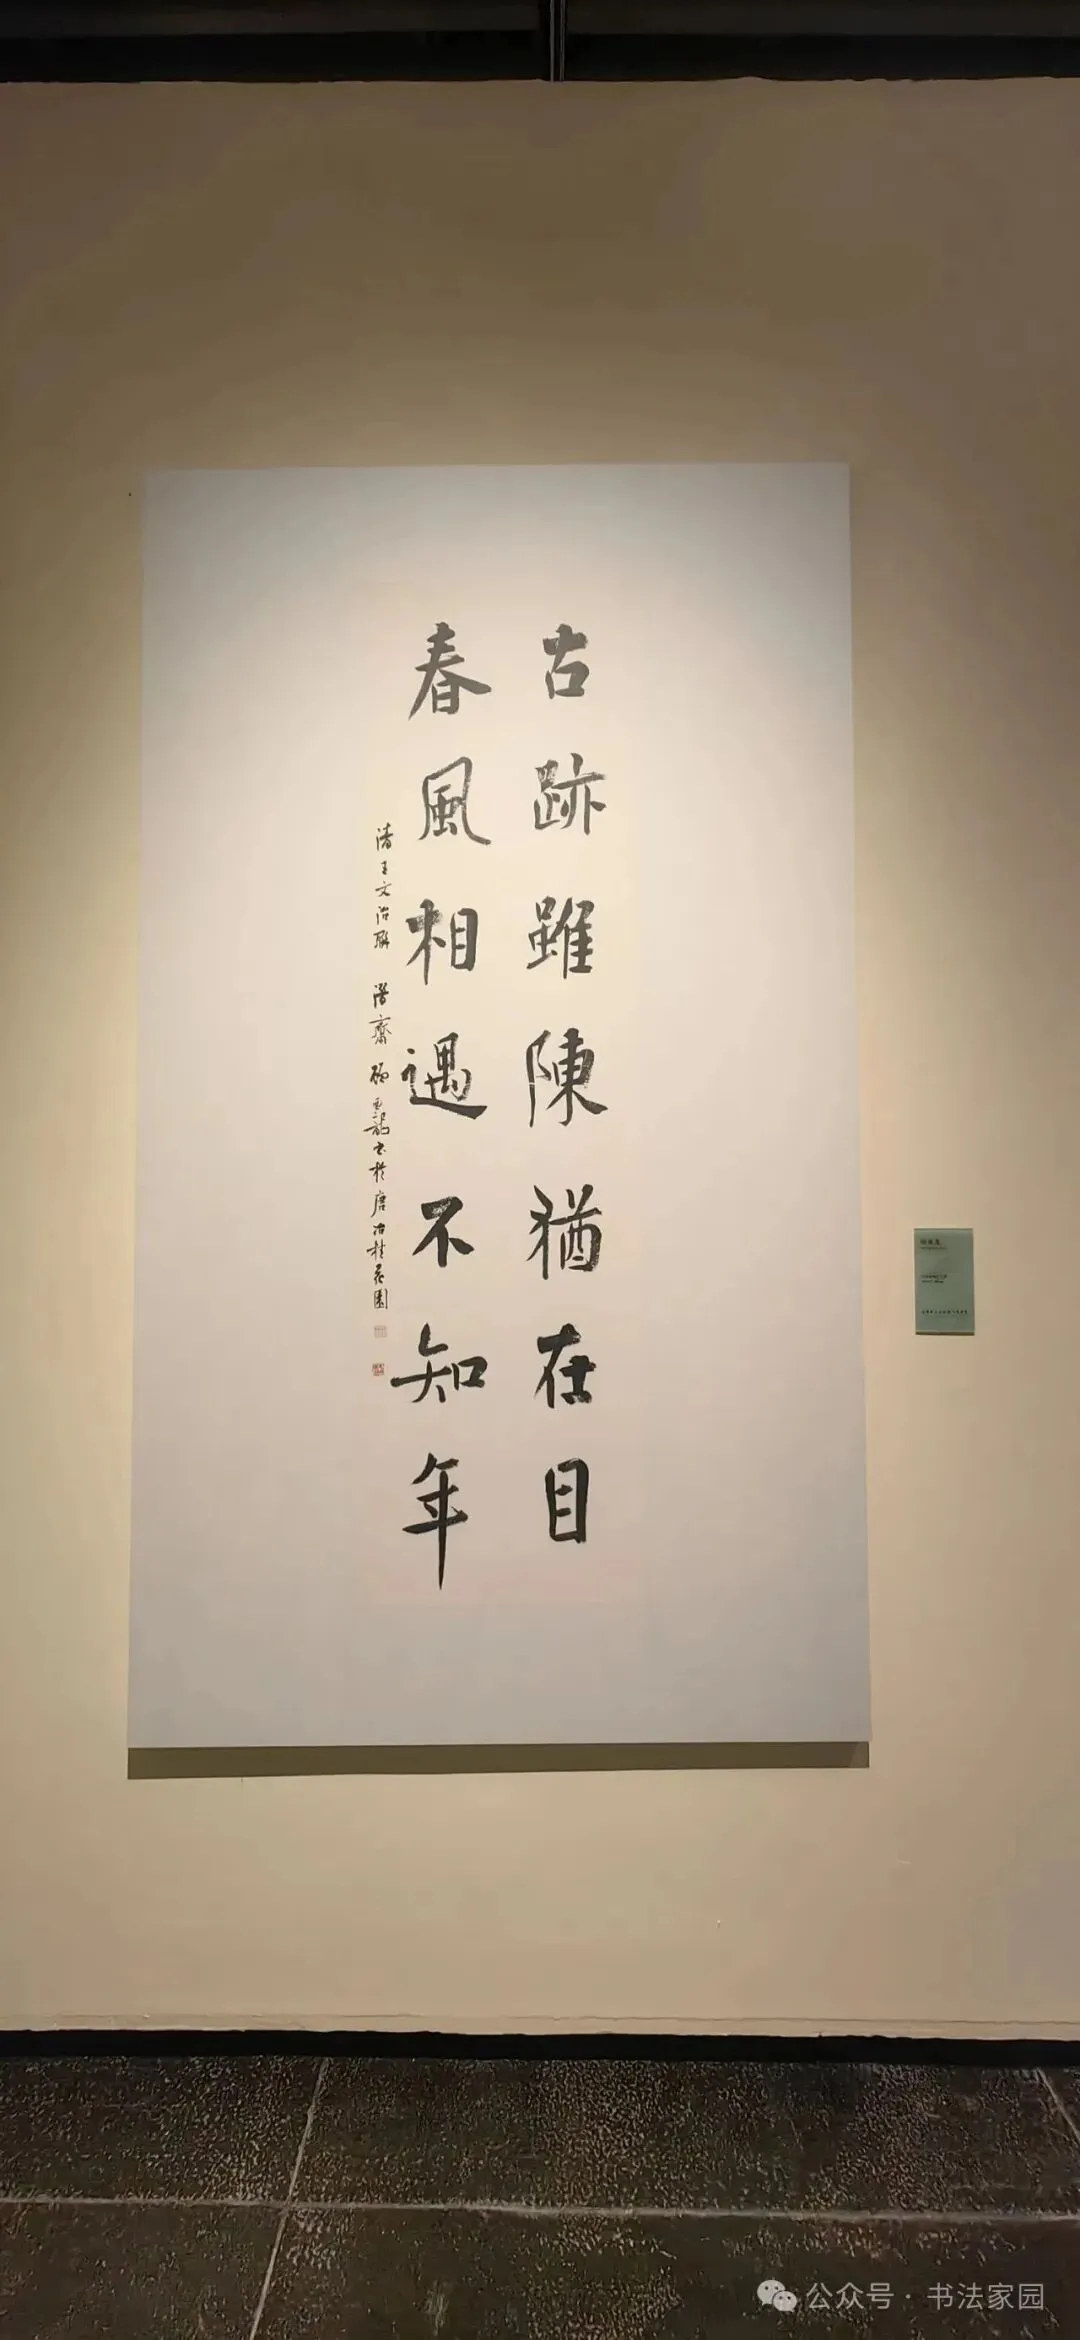 古跡雖陳猶在目
春風相遇不知年
清王文治聯 潛齋 書於唐冶桂花園
公众号 · 书法家园